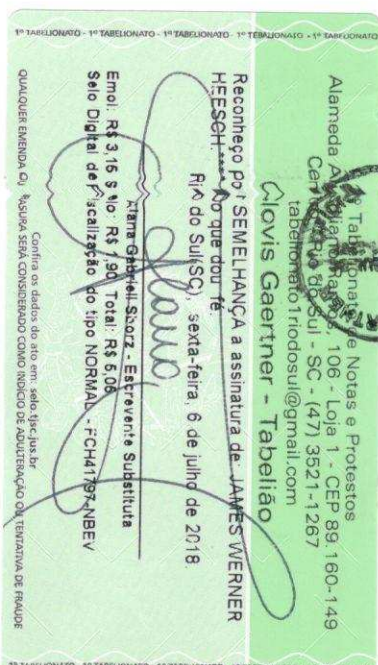 1º TABELIONATO - 1º TABELIONATO - 1º TABELIONATO - 1º TABELIONATO
Tabelionato de Notas e Protestos
Alameda 106 - Loja 1 - CEP 89.160-149
Rio do Sul - SC - (47) 3521-1267
tabelionato1riodosul@gmail.com
Clovis Gaertner - Tabelião
Reconheço por SEMELHANÇA a assinatura de: JAMES WERNER
HEESCH.**** Do que dou fé.
Rio do Sul(SC), sexta-feira, 6 de julho de 2018.
Alana Gabrieli - Escrevente Substituta
Emol: R$ 3,16 Selo: R$ 1,90 Total: R$ 5,06
Selo Digital de Fiscalização do tipo NORMAL - FCH41797-NBEV
Confira os dados do ato em: selo.tjsc.jus.br
QUALQUER EMENDA OU RASURA SERÁ CONSIDERADO COMO INDÍCIO DE ADULTERAÇÃO OU TENTATIVA DE FRAUDE